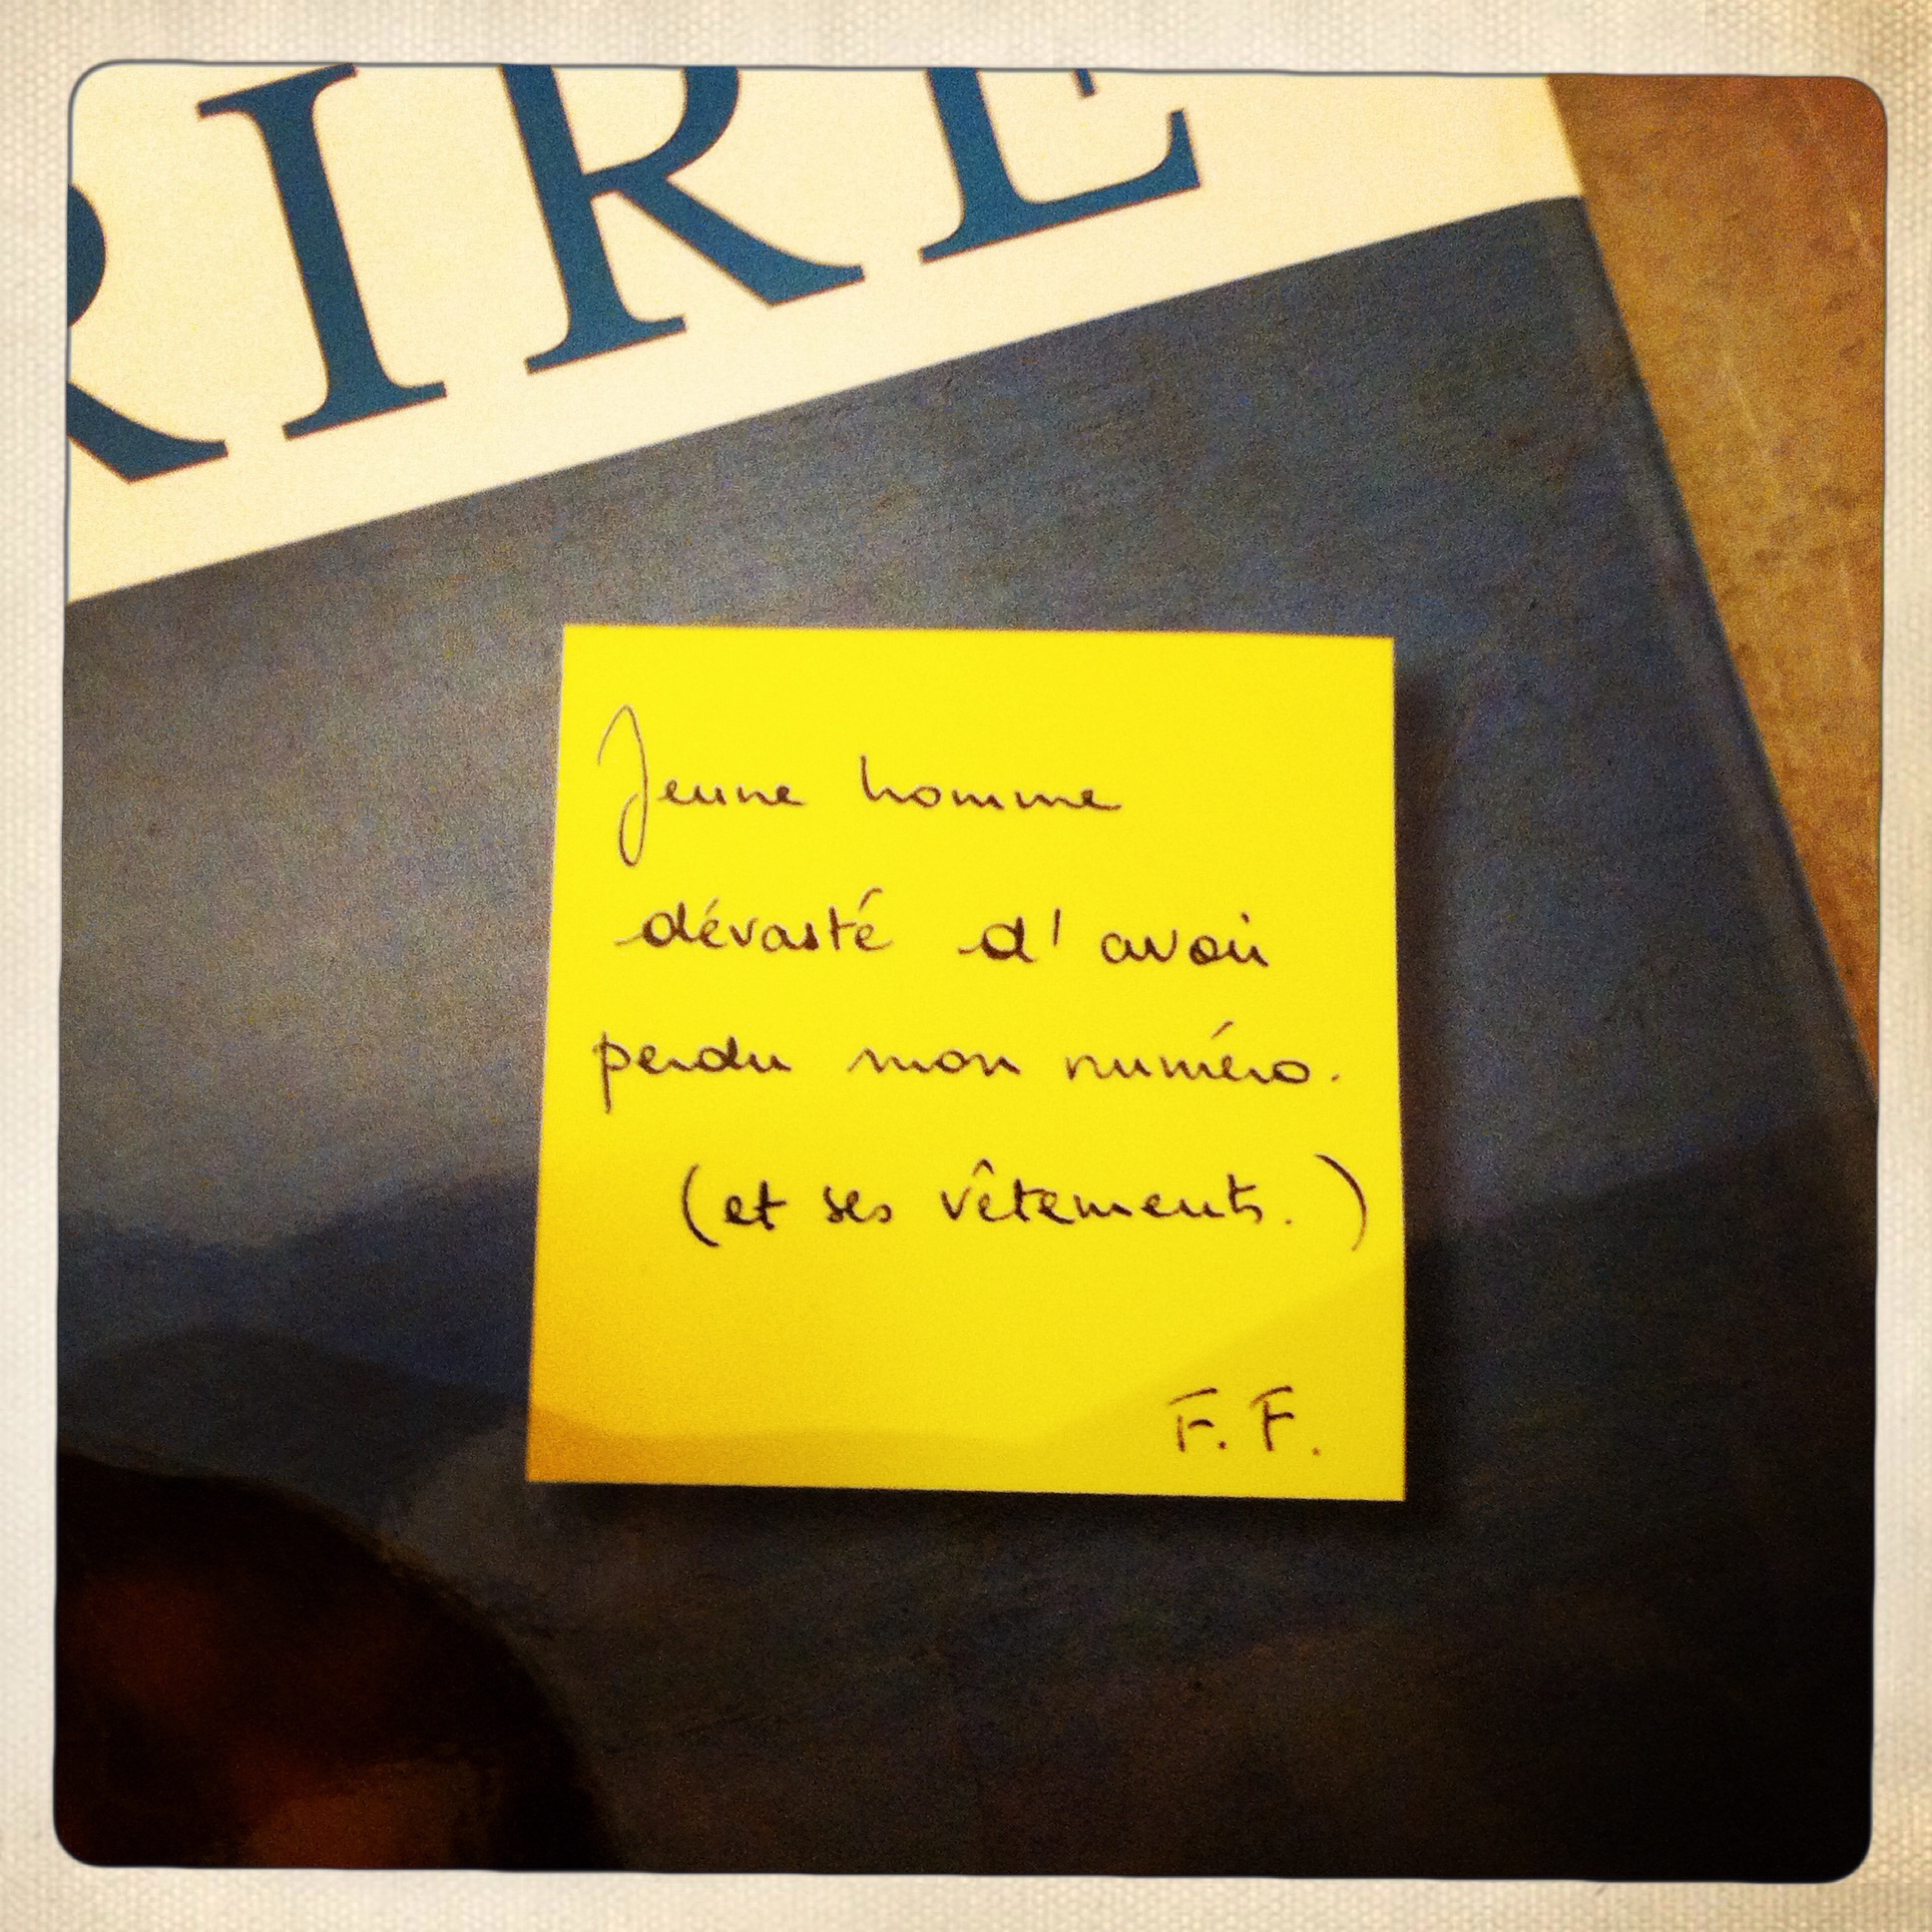 RIRE
Jeune homme
dévasté d'avoir
perdu mon numéro.
(et ses vêtements.)
F. F.